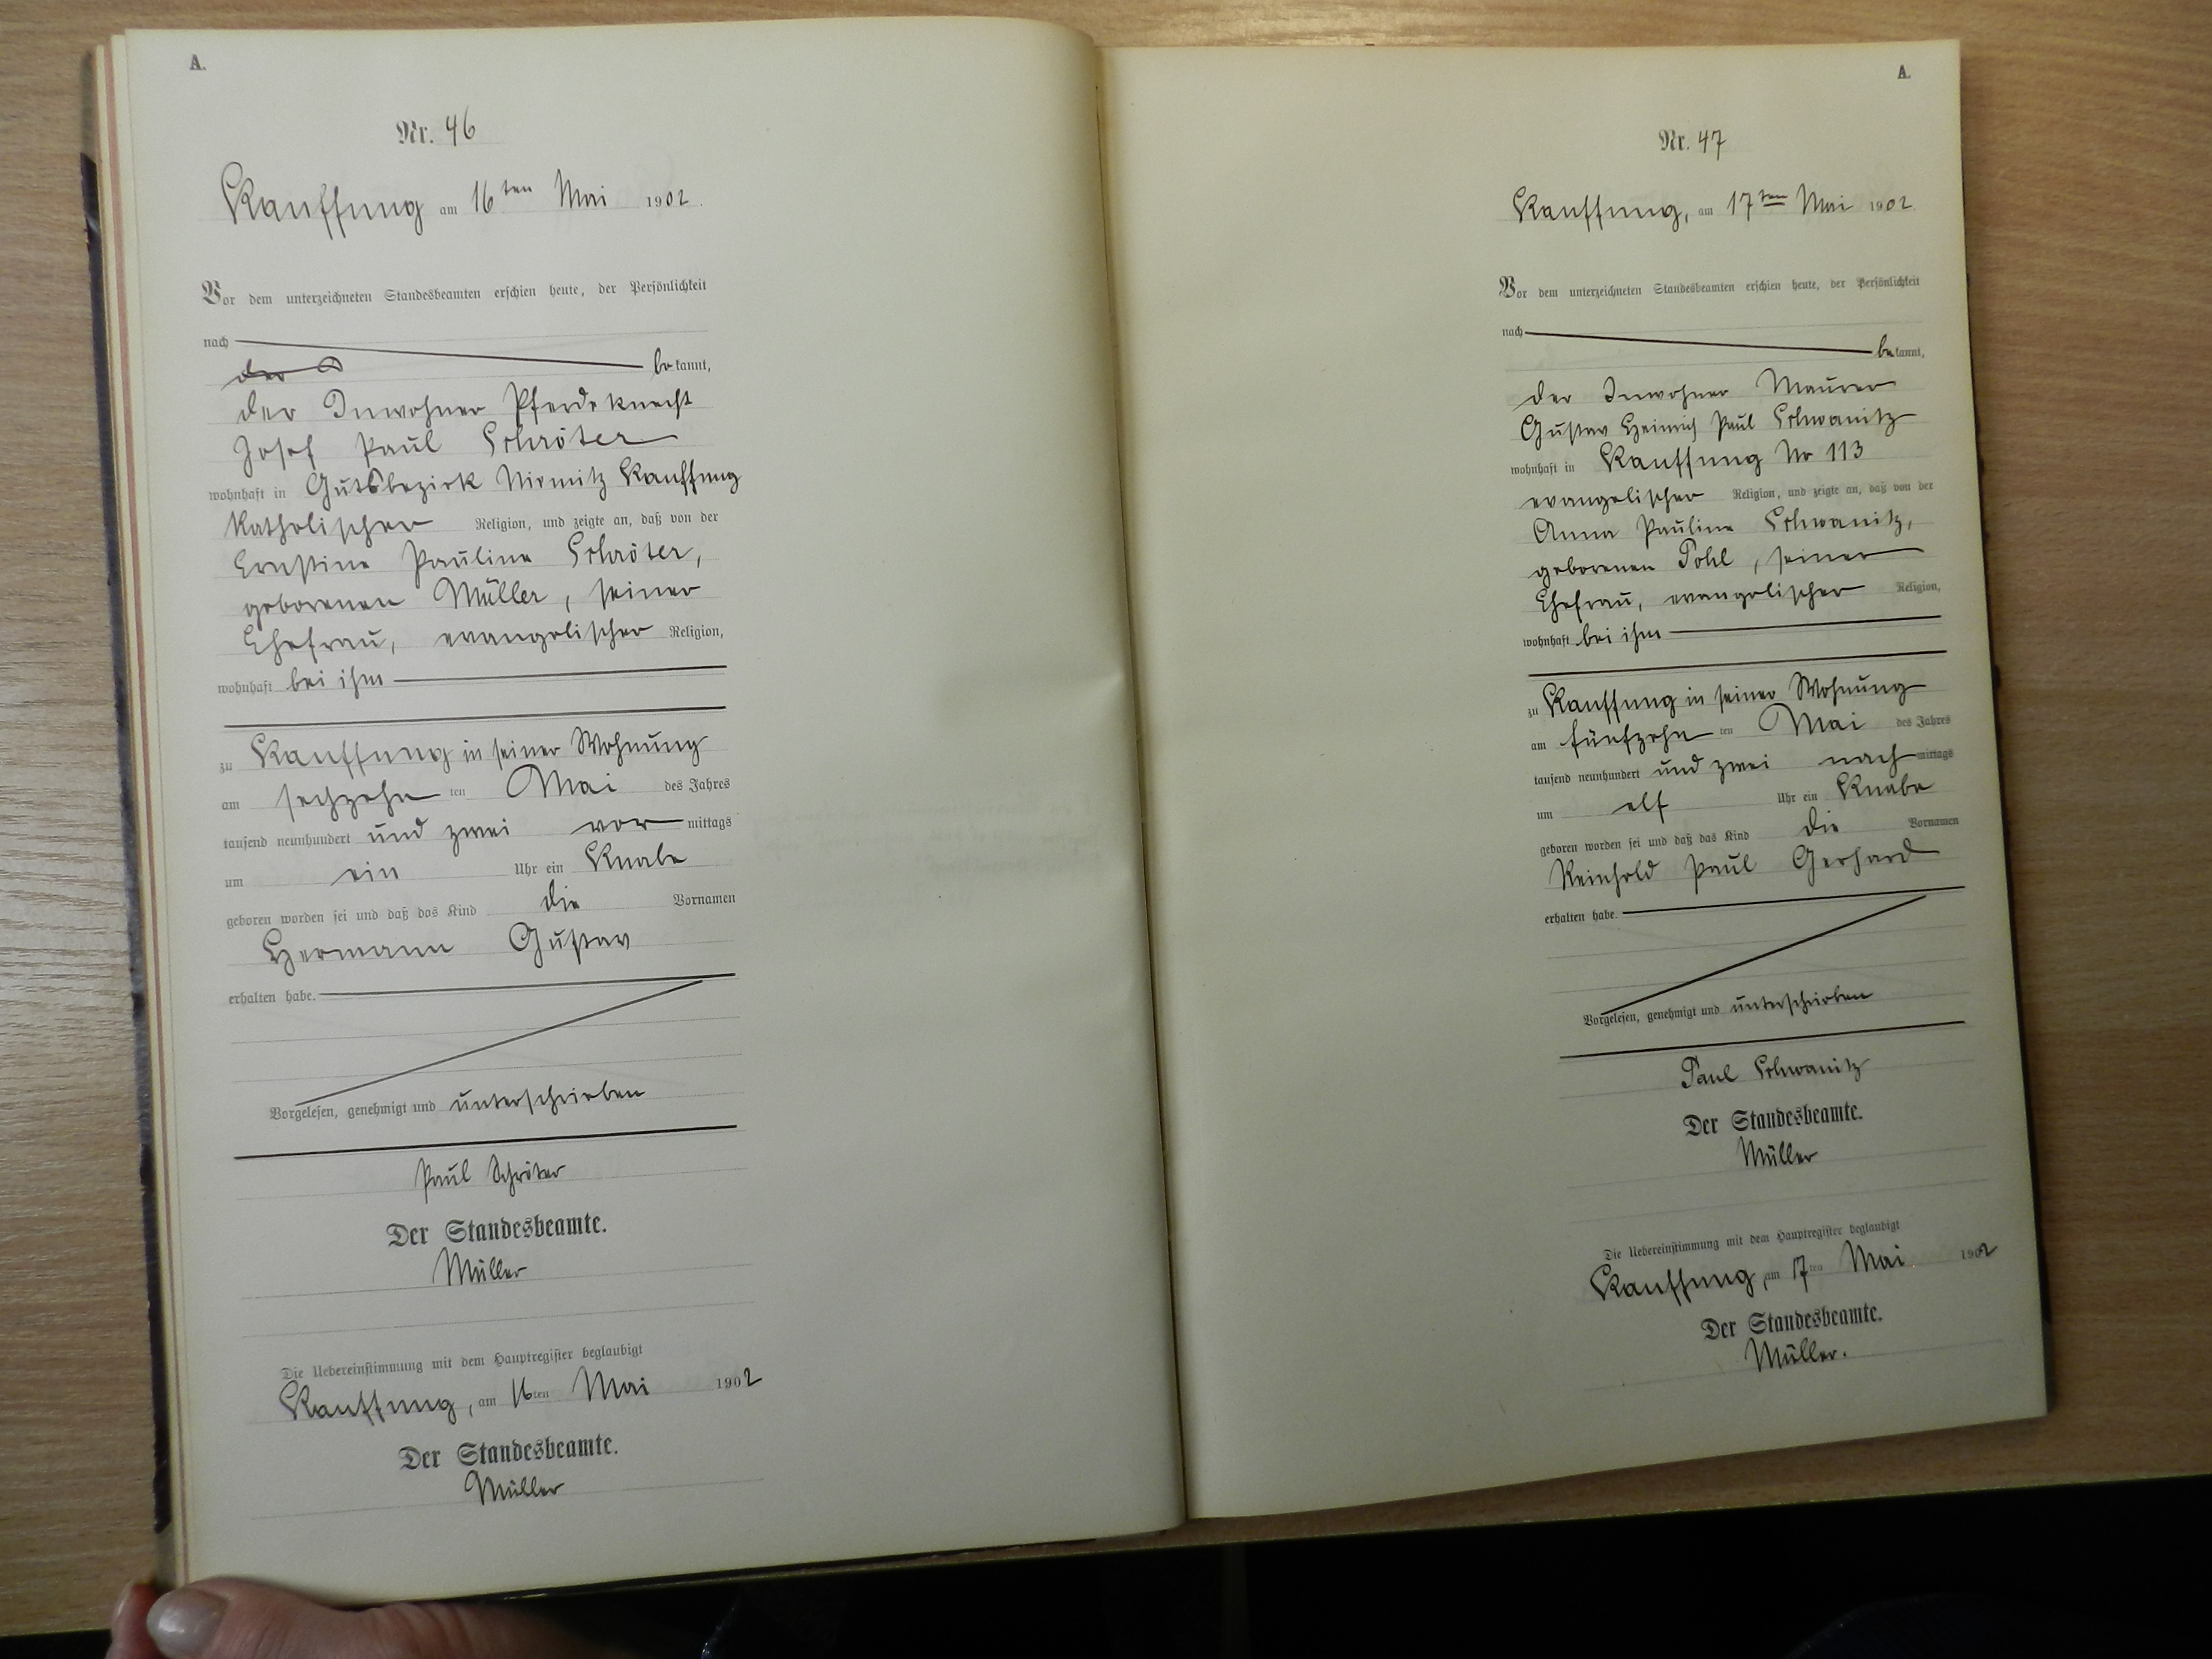 A.
Nr. 46
Kauffung am 16ten Mai 1902.
Vor dem unterzeichneten Standesbeamten erschien heute, der Persönlichkeit
nach
der
bekannt,
der Inwohner Pferdeknecht
Josef Paul Schröter
wohnhaft in Gutsbezirk Niemitz Kauffung
katholischer Religion, und zeigte an, daß von der
Ernstine Pauline Schröter,
geborenen Müller, seiner
Ehefrau, evangelischer Religion,
wohnhaft bei ihm
zu Kauffung in seiner Wohnung
am sechzehn ten Mai des Jahres
tausend neunhundert und zwei vor mittags
um ein Uhr ein Knabe
geboren worden sei und daß das Kind die Vornamen
Hermann Gustav
erhalten habe.
Vorgelesen, genehmigt und unterschrieben
Paul Schröter
Der Standesbeamte.
Müller
Die Uebereinstimmung mit dem Hauptregister beglaubigt
Kauffung, am 16ten Mai 1902
Der Standesbeamte.
Müller
A.
Nr. 47
Kauffung, am 17ten Mai 1902.
Vor dem unterzeichneten Standesbeamten erschien heute, der Persönlichkeit
nach
bekannt,
der Inwohner Maurer
Gustav Heinrich Paul Schwanitz
wohnhaft in Kauffung No 113
evangelischer Religion, und zeigte an, daß von der
Anna Pauline Schwanitz,
geborenen Pohl, seiner
Ehefrau, evangelischer Religion,
wohnhaft bei ihm
zu Kauffung in seiner Wohnung
am fünfzehn ten Mai des Jahres
tausend neunhundert und zwei nach mittags
um elf Uhr ein Knabe
geboren worden sei und daß das Kind die Vornamen
Reinhold Paul Gerhard
erhalten habe.
Vorgelesen, genehmigt und unterschrieben
Paul Schwanitz
Der Standesbeamte.
Müller
Die Uebereinstimmung mit dem Hauptregister beglaubigt
Kauffung, am 17ten Mai 1902
Der Standesbeamte.
Müller.